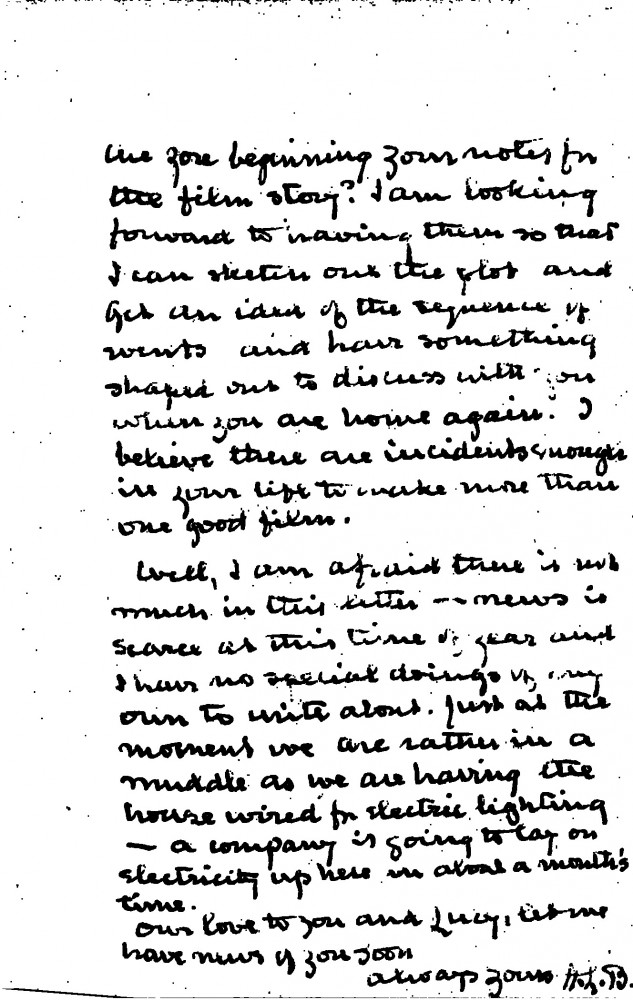 are you beginning your notes for
the film story? I am looking
forward to having them so that
I can sketch out the plot and
get an idea of the sequence of
events and have something
shaped out to discuss with you
when you are home again. I
believe there are incidents enough
in your life to make more than
one good film.
Well, I am afraid there is not
much in this letter — news is
scarce at this time of year and
I have no special doings of my
own to write about. Just at the
moment we are rather in a
muddle as we are having the
house wired for electric lighting
— a company is going to lay on
electricity up here in about a month's
time.
Our love to you and Lucy, let me
have news of you soon
always yours H.L.B.